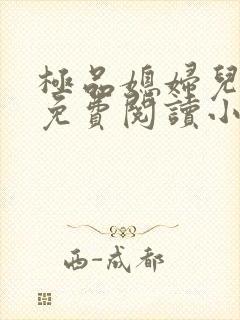 極品媳婦兒
免費閱讀小
西-成都